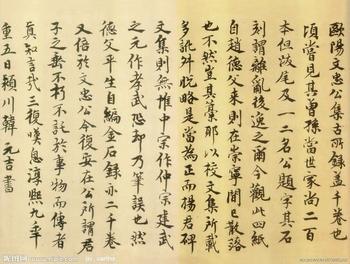 歐陽文忠公集古所錄蓋千卷也
頃嘗見其曾孫當世家尚二百
本但跋尾及一二名公題字其石
刻謂離亂後逸之爾今觀此四紙
自趙德父來則在崇寧間已散落
也不然豈其藁耶以校文集所載
多訛舛脫略是當為正而楊君碑
文集則無惟中宗作仲宗建武
之元作孝武恐却乃筆誤也然
德父平生自編金石錄亦二千卷
又倍於文忠公今復安在公所謂君
子之垂不朽不託於事物而傳者
真知言哉三復嘆息淳熙九年
重五日潁川韓元吉書